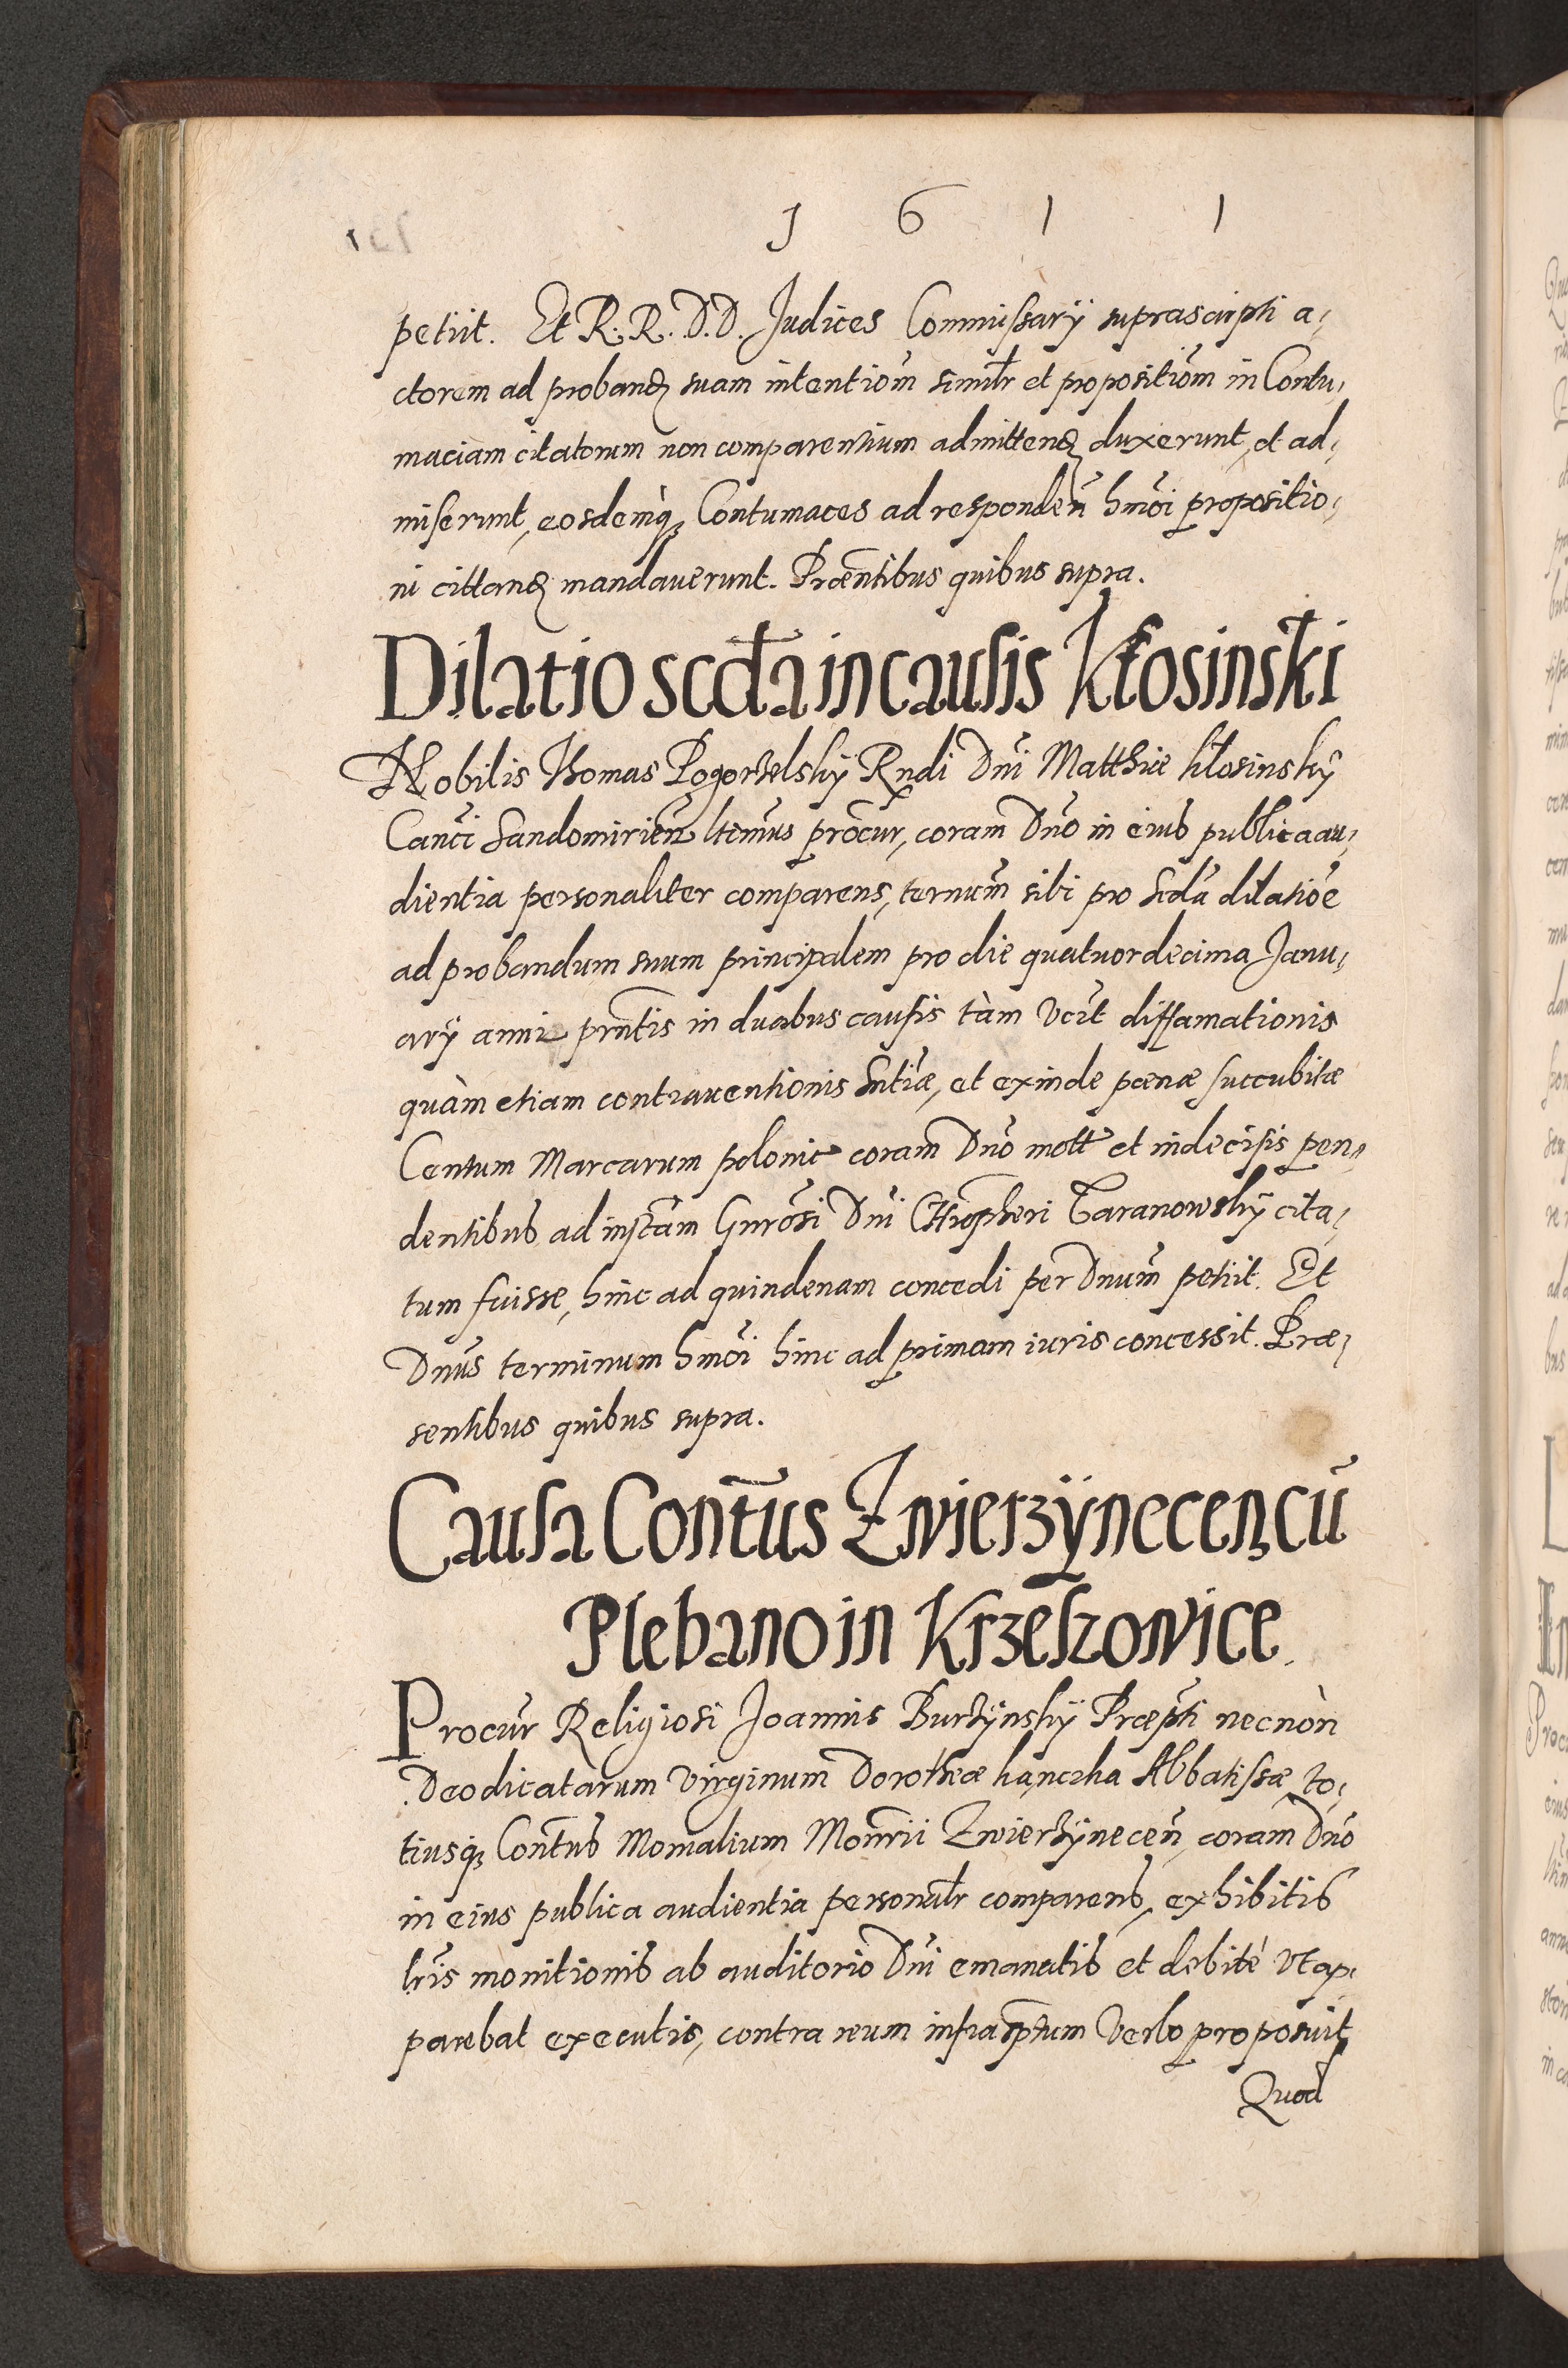 1 6 1 1
petiit. Et R. R. D. D. Judices Commissarÿ suprascripti a,
ctorem ad proband suam intentiom̃ similr̃ et propositiom̃ in Contu,
maciam citatorum non comparentium admittend duxerunt, et ad,
miserunt, eosdemq3 Contumaces ad responden̄ hmōi propositio,
ni cittand mandaverunt. Præntibus quibus supra.
Dilatio scda in causis Kłosinski
Nobilis Thomas Pogorzelskÿ Rndi Dni Matthiæ Kłosinskÿ
Canci Sandomirien̄ ltimus procur, coram Dno in eius publica au,
dientia personaliter comparens, ternum sibi pro scda dilatioe
ad probandum suum principalem pro die quatuordecima Janu,
arÿ anni prntis in duabus causis tàm vcīt diffamationis
quàm etiam contraventionis sntiæ, et exinde pœnæ succubitæ
Centum Marcarum polonic coram Dno mott et indecisis pen,
dentibus ad instam Gnrosi Dni Chropheri Taranowskÿ cita,
tum fuisse, hinc ad quindenam concedi per Dnum petiit. Et
Dnus terminum hmōi hinc ad primam iuris concessit. Præ,
sentibus quibus supra.
Causa Contus Zwierzÿnecen cū
Plebano in Krzeszowice
Procur Religiosi Joannis Burzÿnskÿ Præpti necnòn
Deodicatarum Virginum Dorotheæ Abbatissæ, to,
tiusq3 Contus Monialium Monrii Zwierzÿnecen̄, coram Dno
in eius publica audientia personalr̃ comparens, exhibitis
lris monitionis ab auditorio Dni emanatis et debitè ut ap,
parebat executis, contra reum infraptum Verbo proposuit
Quod